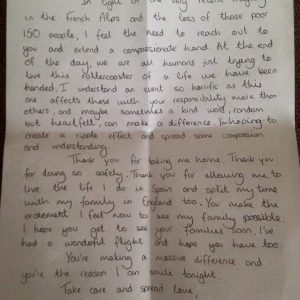 In light of the very recent tragedy
in the French Alps and the loss of those poor
150 people, I feel the need to reach out to
you and extend a compassionate hand. At the end
of the day, we are all humans just trying to
live this rollercoaster of a life we have been
handed. I understand an event so horrific as this
one affects those with your responsibility more than
others, and maybe sometimes a kind word, random
but heartfelt, can make a difference. I'm hoping to
create a ripple effect and spread some compassion
and understanding.
Thank you for taking me home. Thank you
for doing so safely. Thank you for allowing me to
live the life I do in Spain and split my time
with my family in England too. You make the
excitement I feel now to see my family possible.
I hope you get to see your families soon. I've
had a wonderful flight and hope you have too.
You're making a massive difference and
you're the reason I can smile tonight.
Take care and spread love.